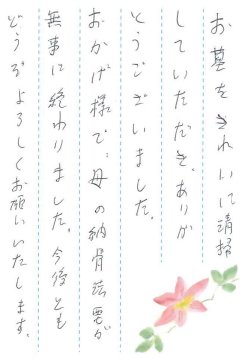 お墓をきれいに清掃
していただき、ありが
とうございました。
おかげ様で、母の納骨法要が
無事に終わりました。今後とも
どうぞよろしくお願いいたします。